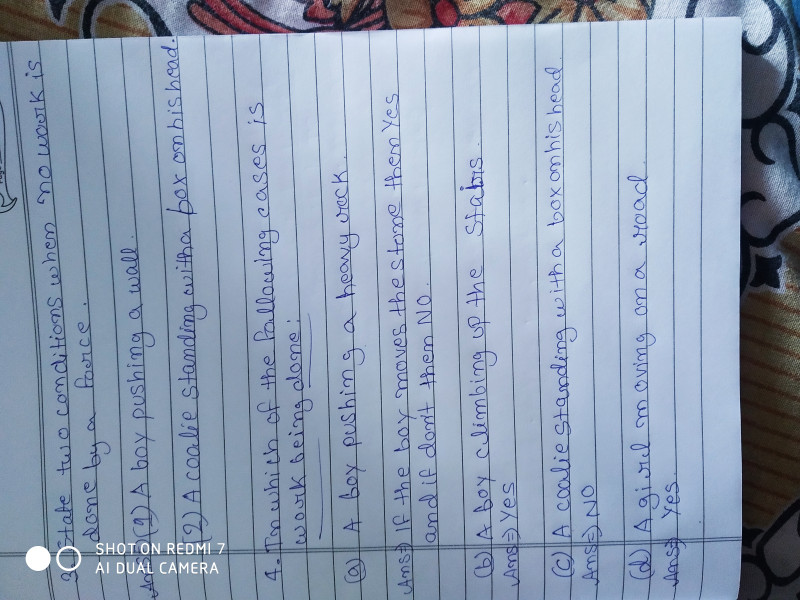 3. State two conditions when no work is
done by a force.
Ans⇒ (1) A boy pushing a wall.
(2) A coolie standing with a box on his head.
4. In which of the following cases is
work being done:
(a) A boy pushing a heavy rock.
Ans⇒ If the boy moves the stone then Yes
and if don't then NO.
(b) A boy climbing up the stairs.
Ans⇒ Yes
(c) A coolie standing with a box on his head.
Ans⇒ NO
(d) A girl moving on a road.
Ans⇒ Yes.
SHOT ON REDMI 7
AI DUAL CAMERA